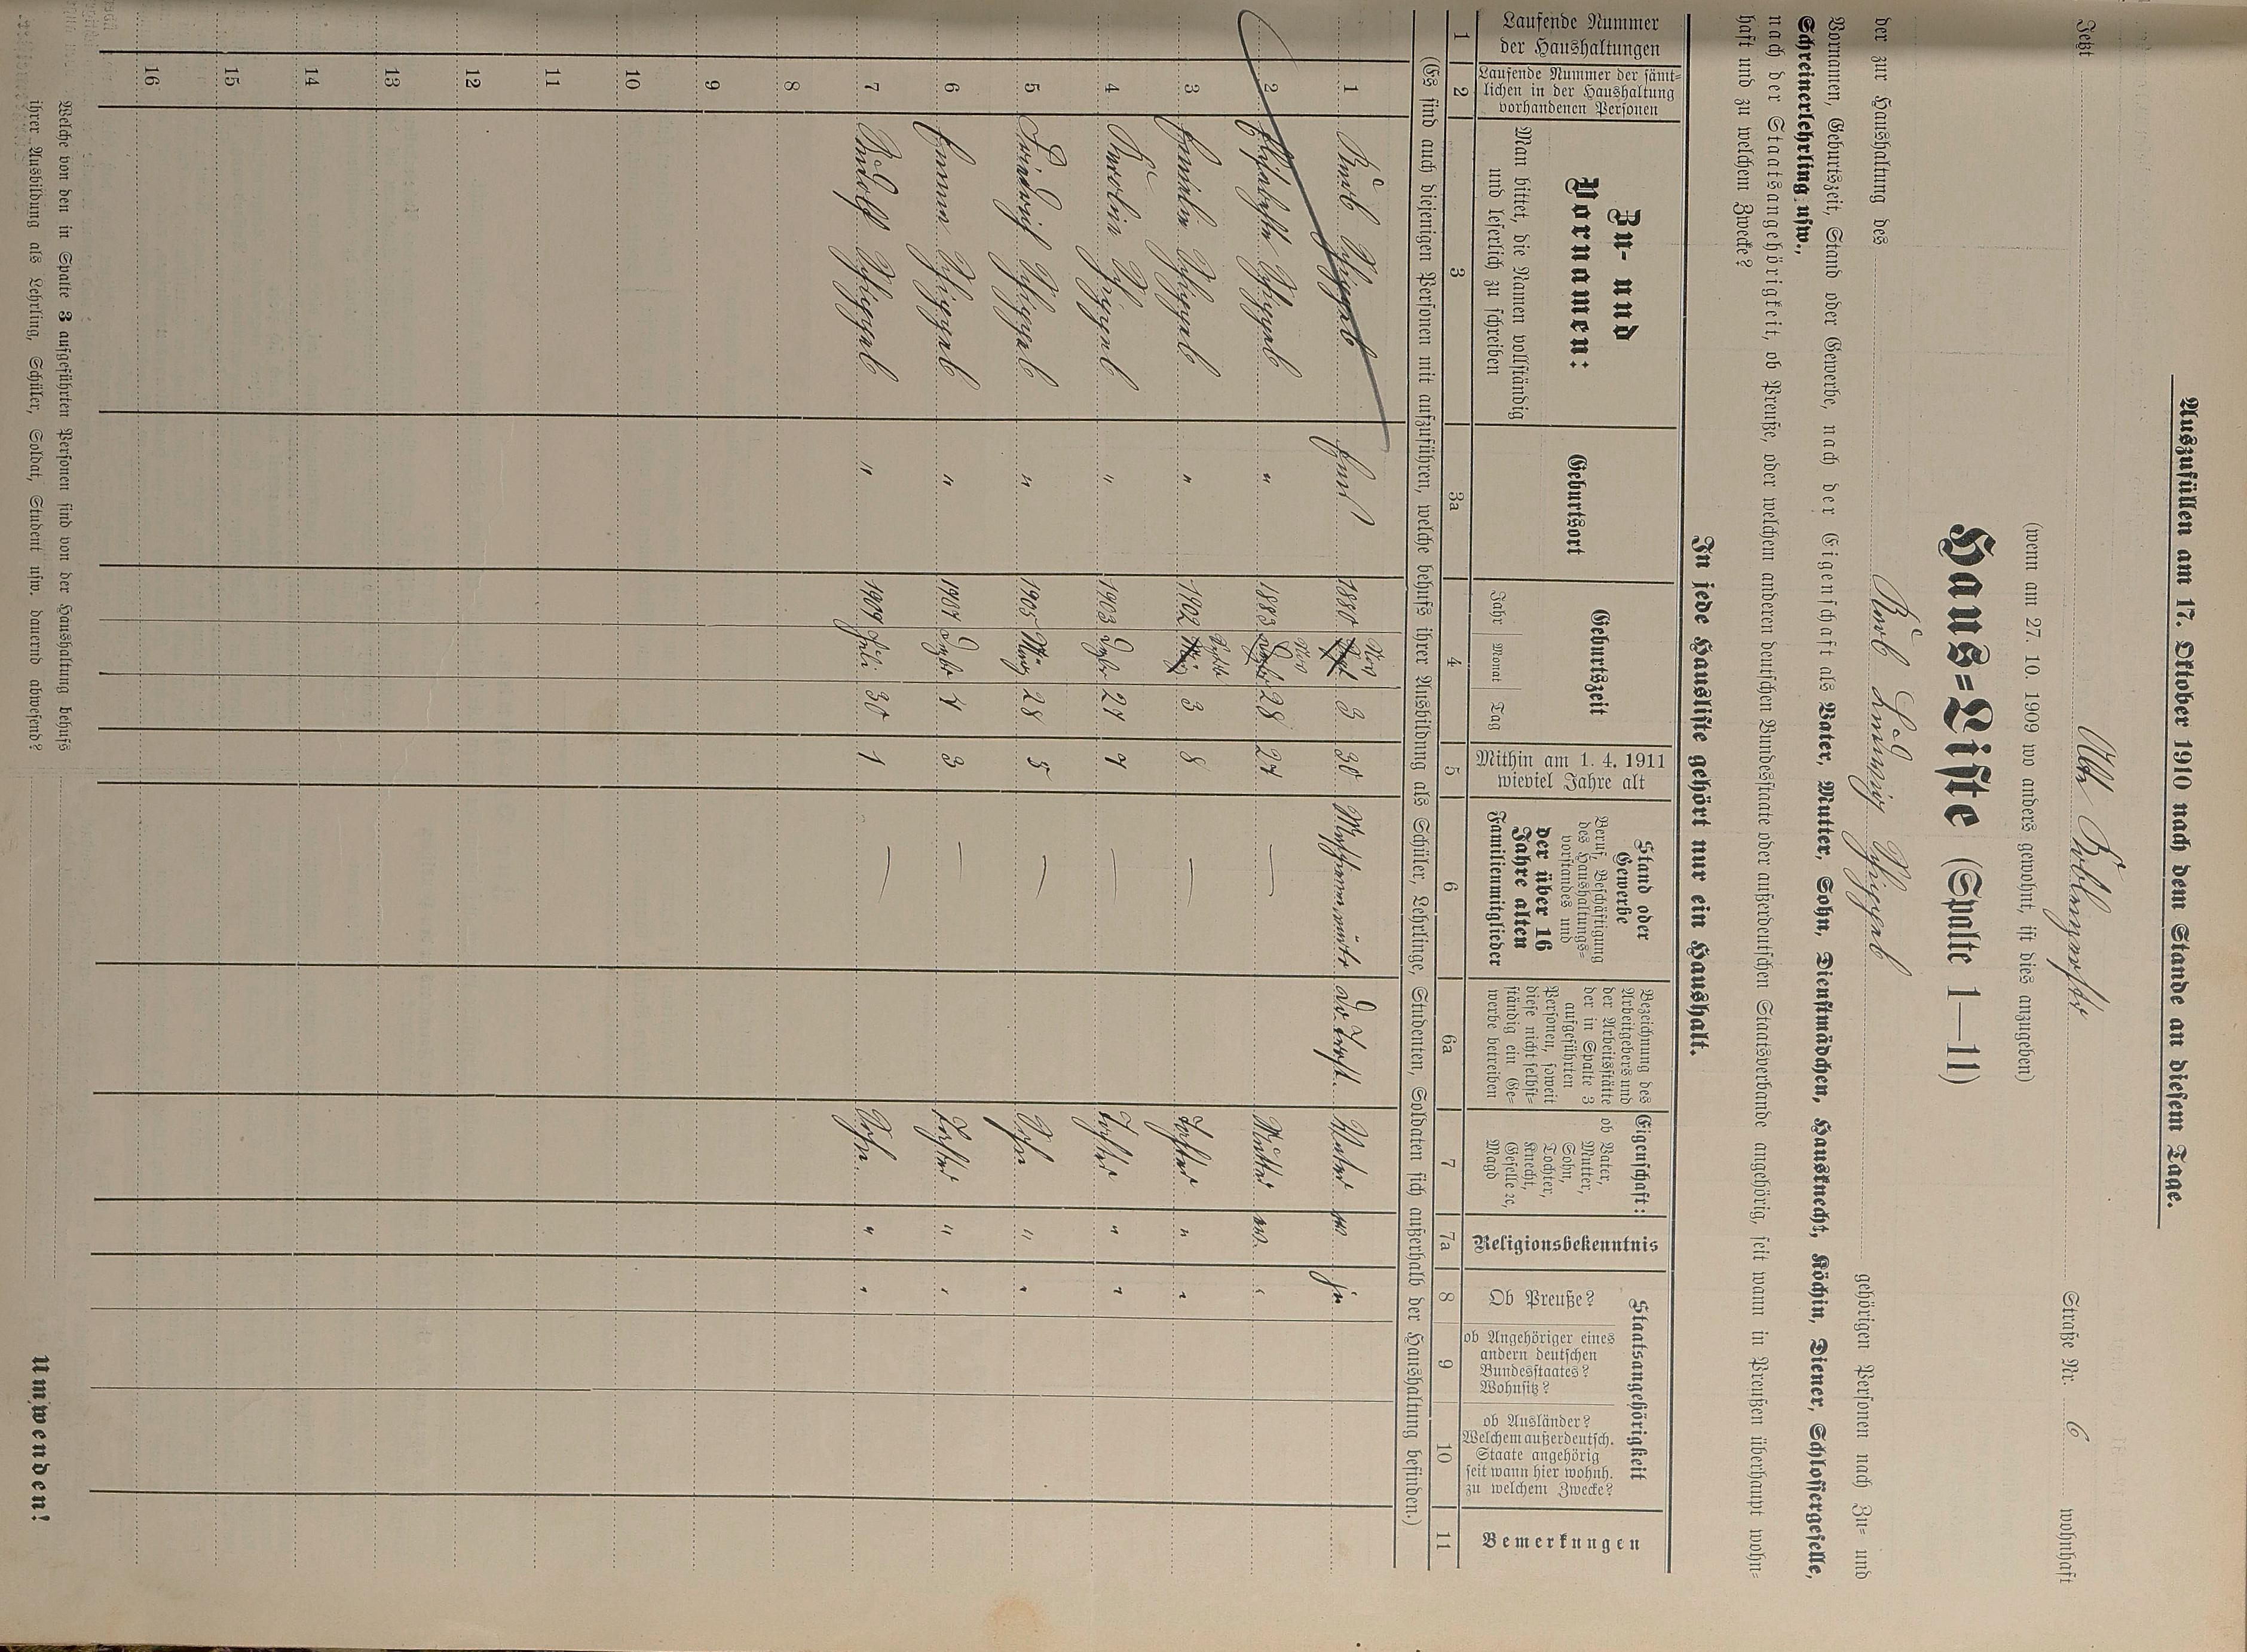 Auszufüllen am 17. Oktober 1910 nach dem Stande an diesem Tage.
Jetzt Alte Straße Nr. 6 wohnhaft
(wenn am 27. 10. 1909 wo anders gewohnt, ist dies anzugeben)
Haus=Liste (Spalte 1—11)
der zur Haushaltung des Karl Ludwig gehörigen Personen nach Zu= und
Vornamen, Geburtszeit, Stand oder Gewerbe, nach der Eigenschaft als Vater, Mutter, Sohn, Dienstmädchen, Hausknecht, Köchin, Diener, Schlossergeselle,
Schreinerlehrling usw.,
nach der Staatsangehörigkeit, ob Preuße, oder welchem anderen deutschen Bundesstaate oder außerdeutschen Staatsverbande angehörig, seit wann in Preußen überhaupt wohn=
haft und zu welchem Zwecke?
In jede Hausliste gehört nur ein Haushalt.
Laufende Nummer
der Haushaltungen
Laufende Nummer der sämt=
lichen in der Haushaltung
vorhandenen Personen
Zu- und
Vornamen:
Man bittet, die Namen vollständig
und leserlich zu schreiben
Geburtsort
Geburtszeit
Jahr Monat Tag
Mithin am 1. 4. 1911
wieviel Jahre alt
Stand oder
Gewerbe
Beruf, Beschäftigung
des Haushaltungs=
vorstandes und
der über 16
Jahre alten
Familienmitglieder
Bezeichnung des
Arbeitgebers und
der Arbeitsstätte
der in Spalte 3
aufgeführten
Personen, soweit
diese nicht selbst=
ständig ein Ge=
werbe betreiben
Eigenschaft:
ob Vater,
Mutter,
Sohn,
Tochter,
Knecht,
Geselle ꝛc,
Magd
Religionsbekenntnis
Staatsangehörigkeit
Ob Preuße?
ob Angehöriger eines
andern deutschen
Bundesstaates?
Wohnsitz?
ob Ausländer?
Welchem außerdeutsch.
Staate angehörig
seit wann hier wohnh.
zu welchem Zwecke?
Bemerkungen
1 2 3 3a 4 5 6 6a 7 7a 8 9 10 11
(Es sind auch diejenigen Personen mit aufzuführen, welche behufs ihrer Ausbildung als Schüler, Lehrlinge, Studenten, Soldaten sich außerhalb der Haushaltung befinden.)
1 Karl 1880 3 30 Vater ja
2 Elisabetha " 1883 28 27 — Mutter "
3 " 1902 3 8 — Tochter " "
4 Karolin " 1903 27 7 — Tochter " "
5 Friedrich " 1905 März 28 5 — Sohn " "
6 Emma " 1907 7 3 — Tochter " "
7 Rudolf " 1909 Juli 30 1 — Sohn " "
8
9
10
11
12
13
14
15
16
Welche von den in Spalte 3 aufgeführten Personen sind von der Haushaltung behufs
ihrer Ausbildung als Lehrling, Schüler, Soldat, Student usw. dauernd abwesend?
Umwenden!